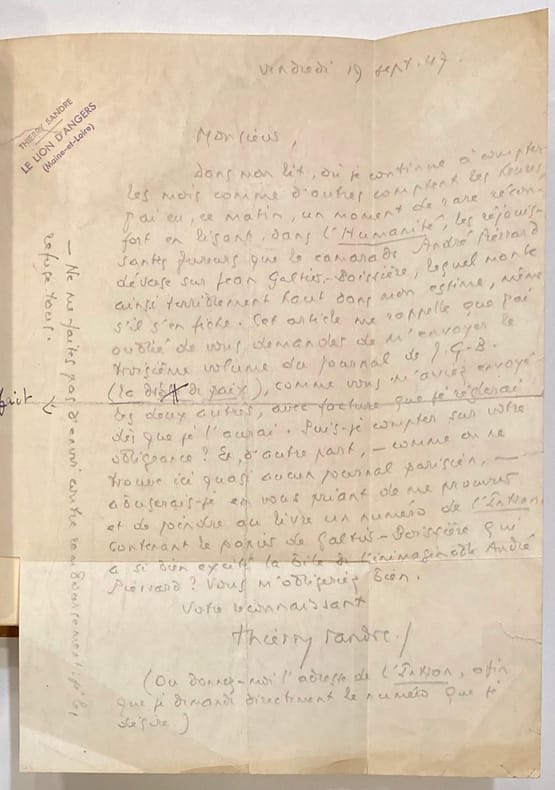 vendredi 19 sept. 47.
THIERRY SANDRE
LE LION D'ANGERS
(Maine-et-Loire)
Monsieur,
Dans mon lit, où je continue à compter
les mois comme d'autres comptent les heures,
j'ai eu, ce matin, un moment de rare récon-
fort en lisant, dans l'Humanité, les réjouis-
santes fureurs que le camarade André Pierrard
déverse sur Jean Galtier-Boissière, lequel monte
ainsi terriblement haut dans mon estime, même
s'il s'en fiche. Cet article me rappelle que j'ai
oublié de vous demander de m'envoyer le
troisième volume du journal de J. G-B.
(la de paix), comme vous m'aviez envoyé
les deux autres, avec facture que je réglerai
dès que je l'aurai. Puis-je compter sur votre
obligeance? Et, d'autre part, – comme on ne
trouve ici quasi aucun journal parisien, –
abuserais-je en vous priant de me procurer
et de joindre au livre un numéro de l'Intran
contenant le papier de Galtier-Boissière qui
a si bien excité la bile de l'inimaginable André
Pierrard? Vous m'obligeriez bien.
Votre reconnaissant
Thierry Sandre./
(Ou donnez-moi l'adresse de l'Intran, afin
que je demande directement le numéro que je
désire)
– Ne me faites pas d'envoi contre remboursement: je les
refuse tous.
fait